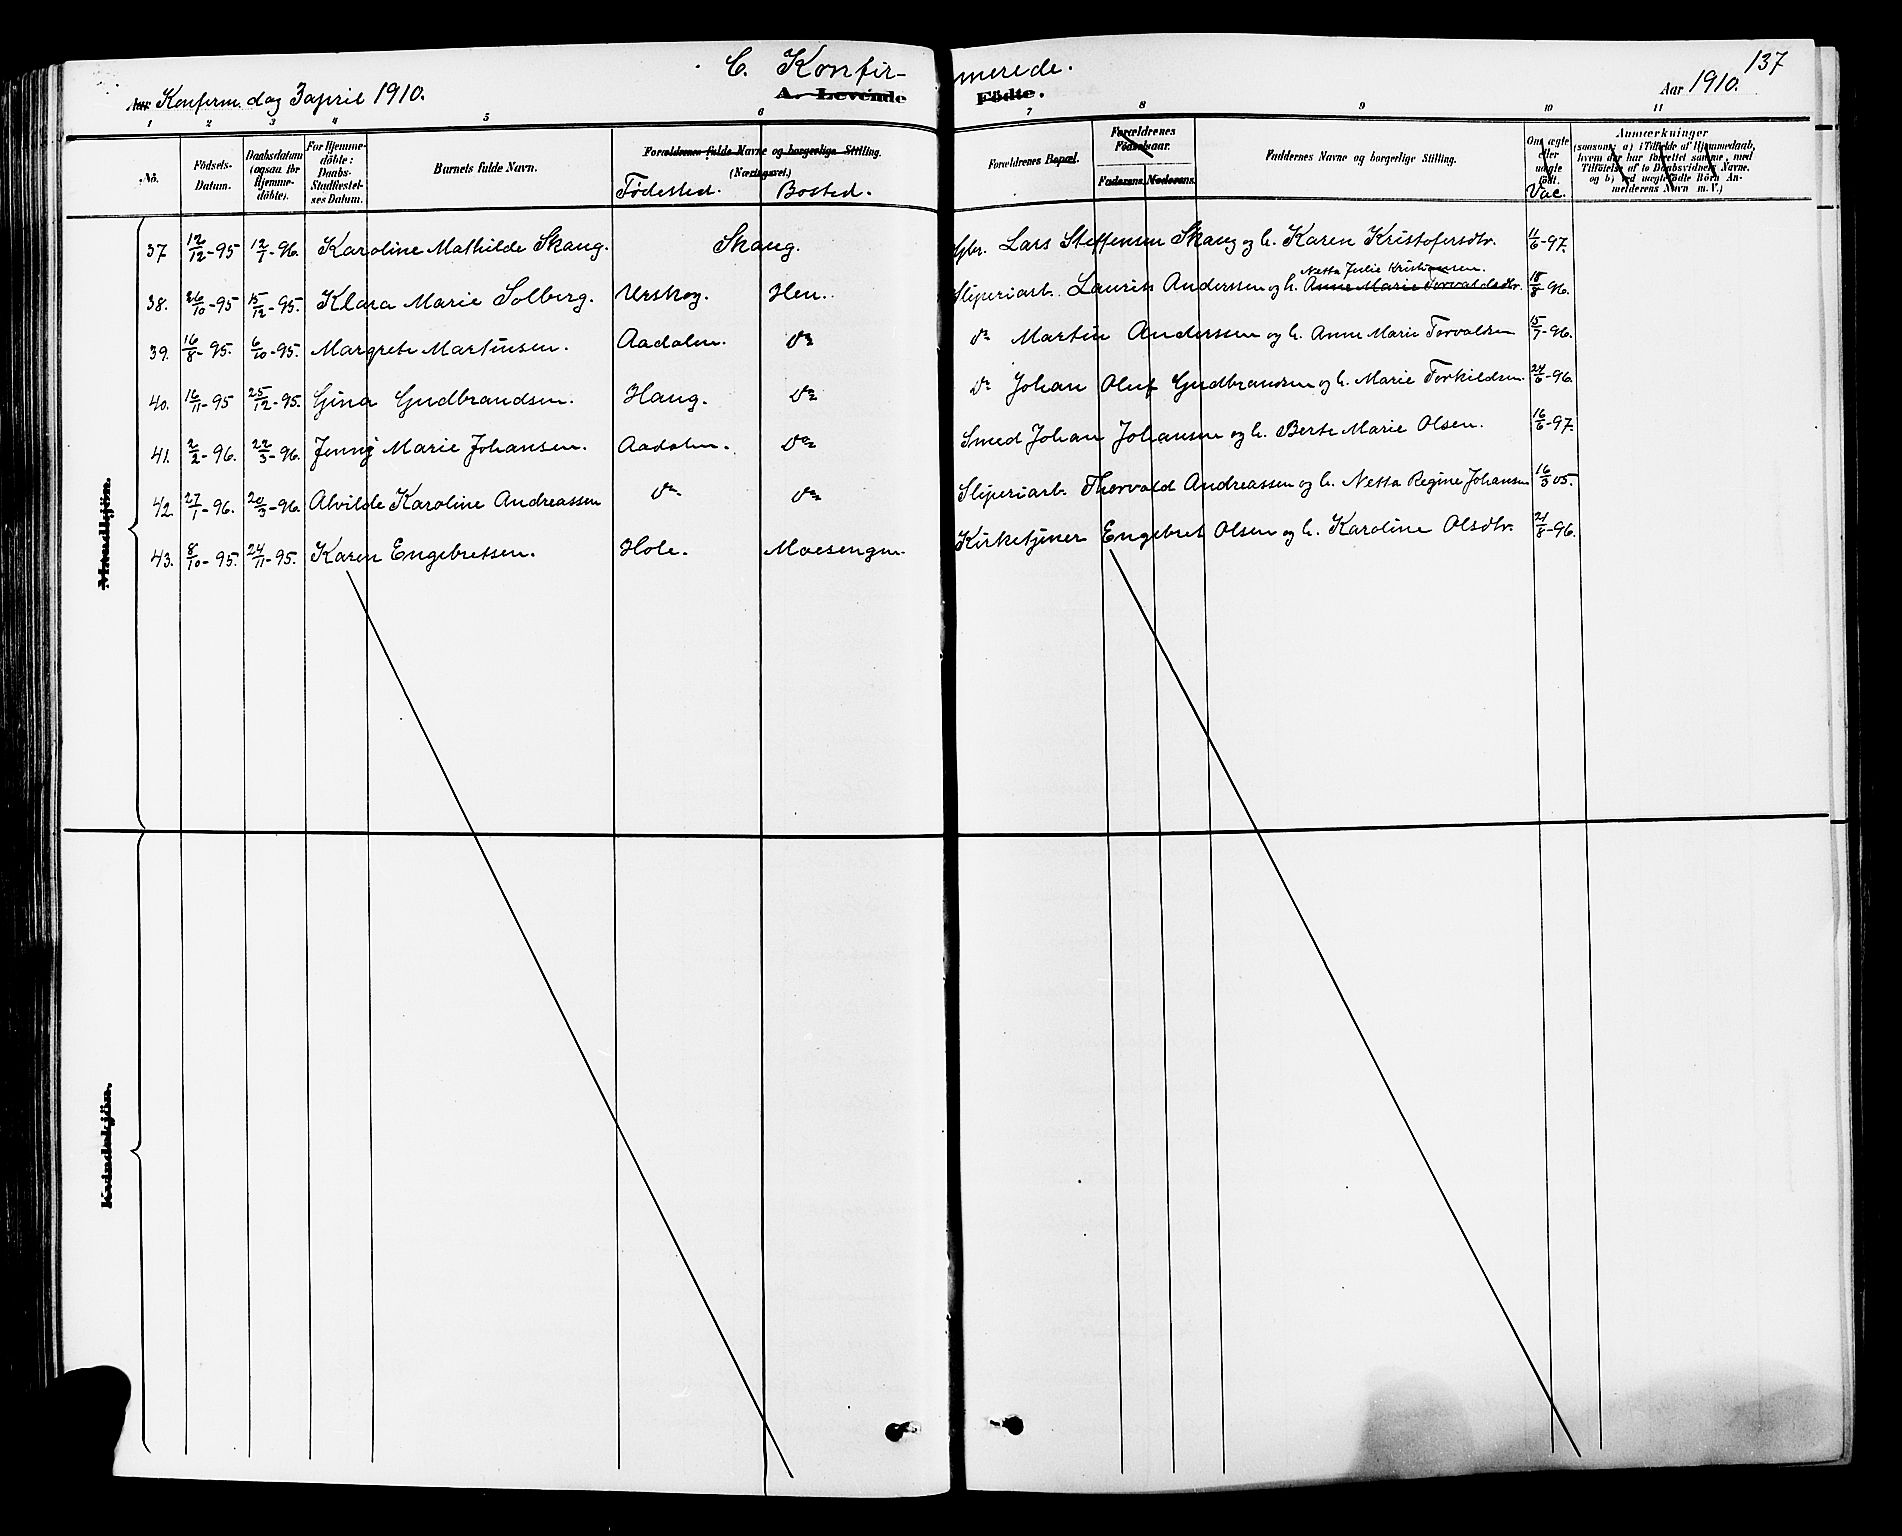 C. Konfirmerede.
137
Aar Konferm. dag 3 april 1910.
A. Levende Födte.
Aar 1910.
1 2 3 4 5 6 7 8 9 10 11
No. Födsels-Datum. Daabsdatum (ogsaa for Hjemme-döbte). For Hjemme-döbte: Daabs-Stadfæstel-ses Datum. Barnets fulde Navn. Forældrenes fulde Navne og borgerlige Stilling. (Næringsvei.) Fødested. Bosted. Forældrenes Bopæl. Forældrenes Födselsaar. Faderens. Moderens. Faddernes Navne og borgerlige Stilling. Om ægte eller uægte födt. Vac. Anmærkninger (saasom: a) i Tilfælde af Hjemmedaab, hvem der har forrettet samme, med Tilföielse af to Daabsvidners Navne, og b) ved uægtefödte Börn Anmelderens Navn m. V.)
Mandkjön.
37 12/12-95 12/1-96. Karoline Mathilde Skaug. Skaug. Gbr. Lars Steffensen Skaug og h. Karen Kristofersdtr. 11/6-97.
Netta Julie Kristiansen.
38. 26/10-95 15/12-95. Klara Marie Solberg. Urskog. Hen. Sliperiarb. Laurits Anderssen og h. Anne Marie Torvaldsdtr. 18/8-96.
39. 16/8-95. 6/10-95. Margrete Martinsen. Aadalen. do do Martin Anderssen og h. Anne Marie Torvaldsen 15/7-96.
40. 16/11-95 25/12-95. Gina Gudbrandsen. Haug. do do Johan Oluf Gudbrandsen og h. Marie Torkildsen. 24/6-96.
41. 2/2-96. 22/3-96. Jenny Marie Johansen. Aadalen. do Smed Johan Johansen og h. Berte Marie Olsen. 16/6-97.
42. 27/1-96. 20/3-96. Alvilde Karoline Andreassen do do Sliperiarb. Thorvald Andreassen og h. Netta Regine Johansen 16/3 05.
43. 8/10-95. 24/11-95. Karen Engebretsen. Hole. Moesengen. Kirketjener Engebret Olsen og h. Karoline Olsdtr. 21/8-96.
Kvindekjön.